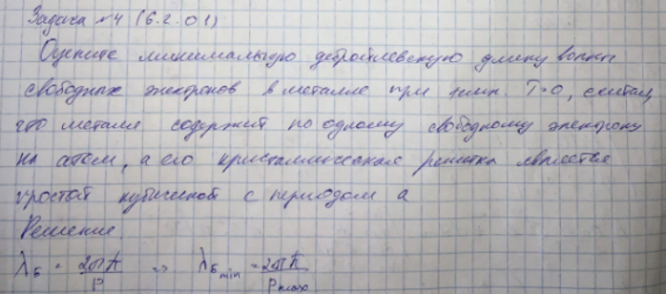 Задача №4 (6.2.01)
Оцените минимальную дебройлевскую длину волны
свободных электронов в металле при темп. T=0, считая,
что металл содержит по одному свободному электрону
на атом, а его кристаллическая решетка является
простой кубической с периодом a
Решение
λ_Б = 2πħ/p => λ_Б min = 2πħ/p max